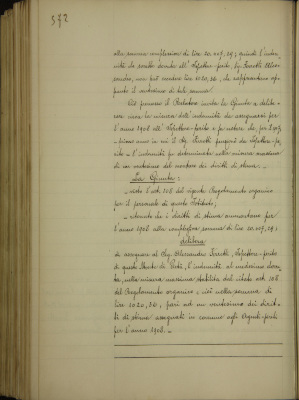 572
alla somma complessiva di lire 20.407,29; quindi l'inden-
nità da corrispondersi all'Ispettore-perito, Sig. Ferretti Ales-
sandro, non può essere lire 1020,36, che rappresentano ap-
punto il ventesimo di tale somma.
Ciò premesso il Presidente invita la Giunta a delibe-
rare circa la misura della indennità da assegnarsi per
l'anno 1906 all'Ispettore-perito
primo anno in cui il Sig. Ferretti
l'indennità fu determinata nella misura massima
di un ventesimo del montare dei diritti di stima. -
La Giunta:
- visto l'art. 108 del vigente Regolamento organico
per il personale di questo Istituto;
- ritenuto che i diritti di stima ammontarono per
l'anno 1906 alla complessiva somma di lire 20.407,29;
delibera
di assegnare al Sig. Alessandro Ferretti, Ispettore-perito
di questo Monte di Pietà, l'indennità al medesimo dovu-
ta, nella misura massima stabilita dal citato art. 108
del Regolamento organico, cioè nella somma di
lire 1020,36, pari ad un ventesimo dei dirit-
ti di stima assegnati in comune agli
per l'anno 1906. -